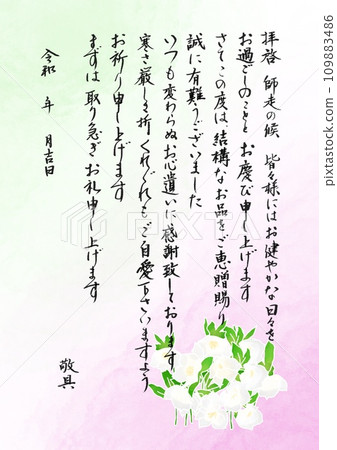 拝啓 師走の候 皆々様にはお健やかな日々を
お過ごしのことと お慶び申し上げます
さてこの度は 結構なお品をご恵贈賜り
誠に有難うございました
いつも変わらぬお心遣いに感謝致しております
寒さ厳しき折 くれぐれもご自愛下さいますよう
お祈り申し上げます
まずは 取り急ぎ お礼申し上げます
敬具
令和 年 月吉日
PIXTA
109883486